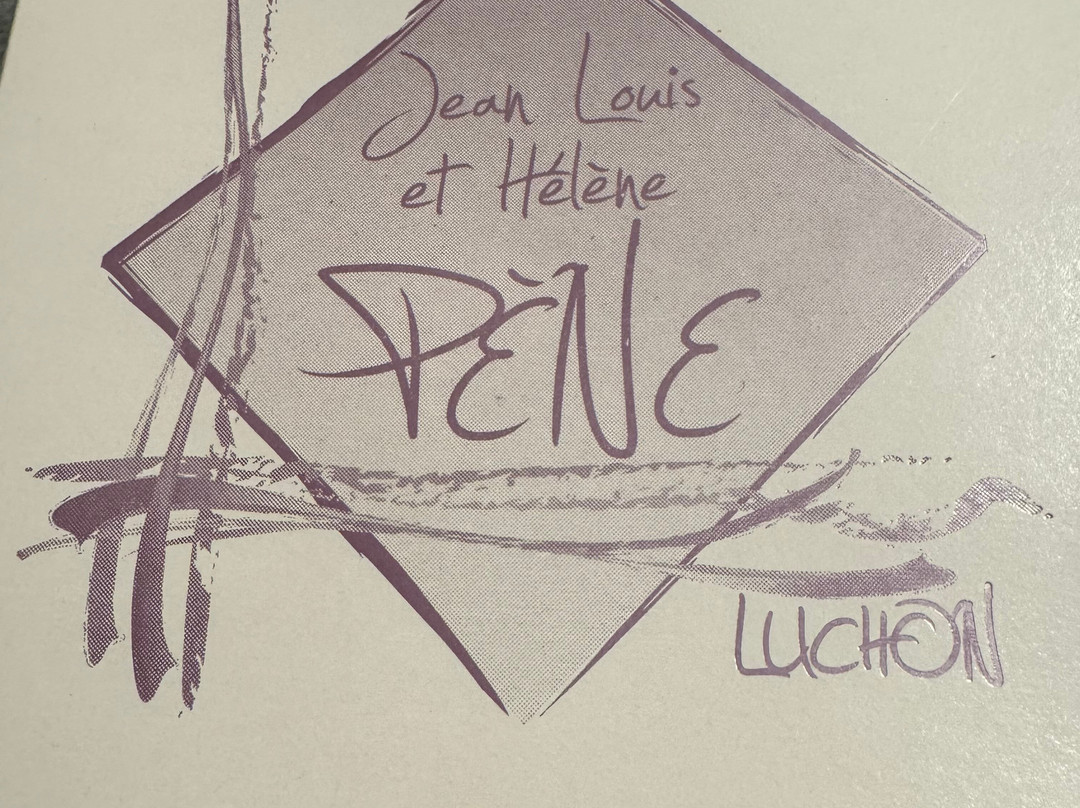 Jean Louis
et Hélène
PÈNE
LUCHON